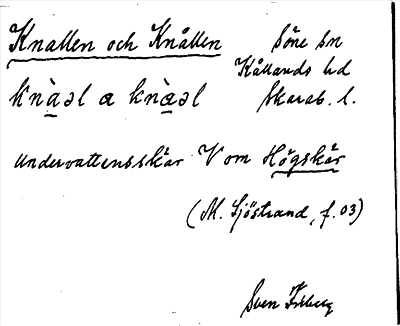 Knallen och Knållen Söne sn
Kållands hd
knàəl a knàəl Skarab. l.
undervattensskär V om Högskär
(M. Sjöstrand, f. 03)
Sven